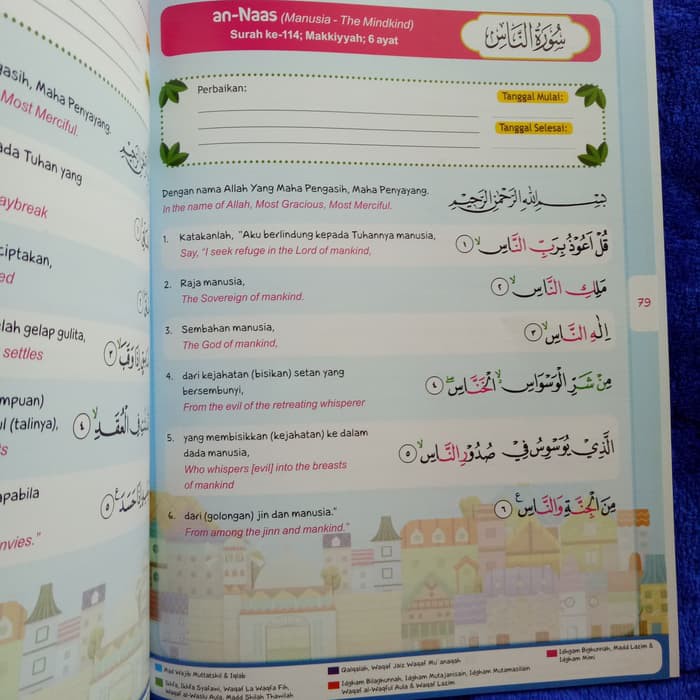 gasih, Maha Penyayang.
Most Merciful.
ada Tuhan yang
aybreak
ciptakan,
ed
lah gelap gulita,
settles
mpuan)
ul (talinya),
ts
apabila
nvies."
an-Naas (Manusia - The Mindkind)
Surah ke-114; Makkiyyah; 6 ayat
سُورَةُ النَّاسِ
Perbaikan:
Tanggal Mulai:
Tanggal Selesai:
Dengan nama Allah Yang Maha Pengasih, Maha Penyayang.
In the name of Allah, Most Gracious, Most Merciful.
بِسْمِ اللهِ الرَّحْمٰنِ الرَّحِيْمِ
1. Katakanlah, "Aku berlindung kepada Tuhannya manusia,
Say, "I seek refuge in the Lord of mankind,
قُلْ اَعُوْذُ بِرَبِّ النَّاسِۙ ١
2. Raja manusia,
The Sovereign of mankind.
مَلِكِ النَّاسِۙ ٢
3. Sembahan manusia,
The God of mankind,
اِلٰهِ النَّاسِۙ ٣
4. dari kejahatan (bisikan) setan yang
bersembunyi,
From the evil of the retreating whisperer
مِنْ شَرِّ الْوَسْوَاسِ ەۙ الْخَنَّاسِۖ ٤
5. yang membisikkan (kejahatan) ke dalam
dada manusia,
Who whispers [evil] into the breasts
of mankind
الَّذِيْ يُوَسْوِسُ فِيْ صُدُوْرِ النَّاسِۙ ٥
6. dari (golongan) jin dan manusia."
From among the jinn and mankind."
مِنَ الْجِنَّةِ وَالنَّاسِ ࣖ ٦
79
Mad Wajib Muttatshil & Iqlab
Ikhfa, Ikhfa Syafawi, Waqaf La Waqfa Fih,
Waqaf al-Waslu Aula, Madd Shilah Thawilah
Qalqalah, Waqaf Jaiz Waqaf Mu'anaqah
Idgham Bilaghunnah, Idgham Mutajanisain, Idgham Mutamasilain
Waqaf al-Waqful Aula & Waqaf Lazim
Idhgam Bighunnah, Madd Lazim &
Idgham Mimi